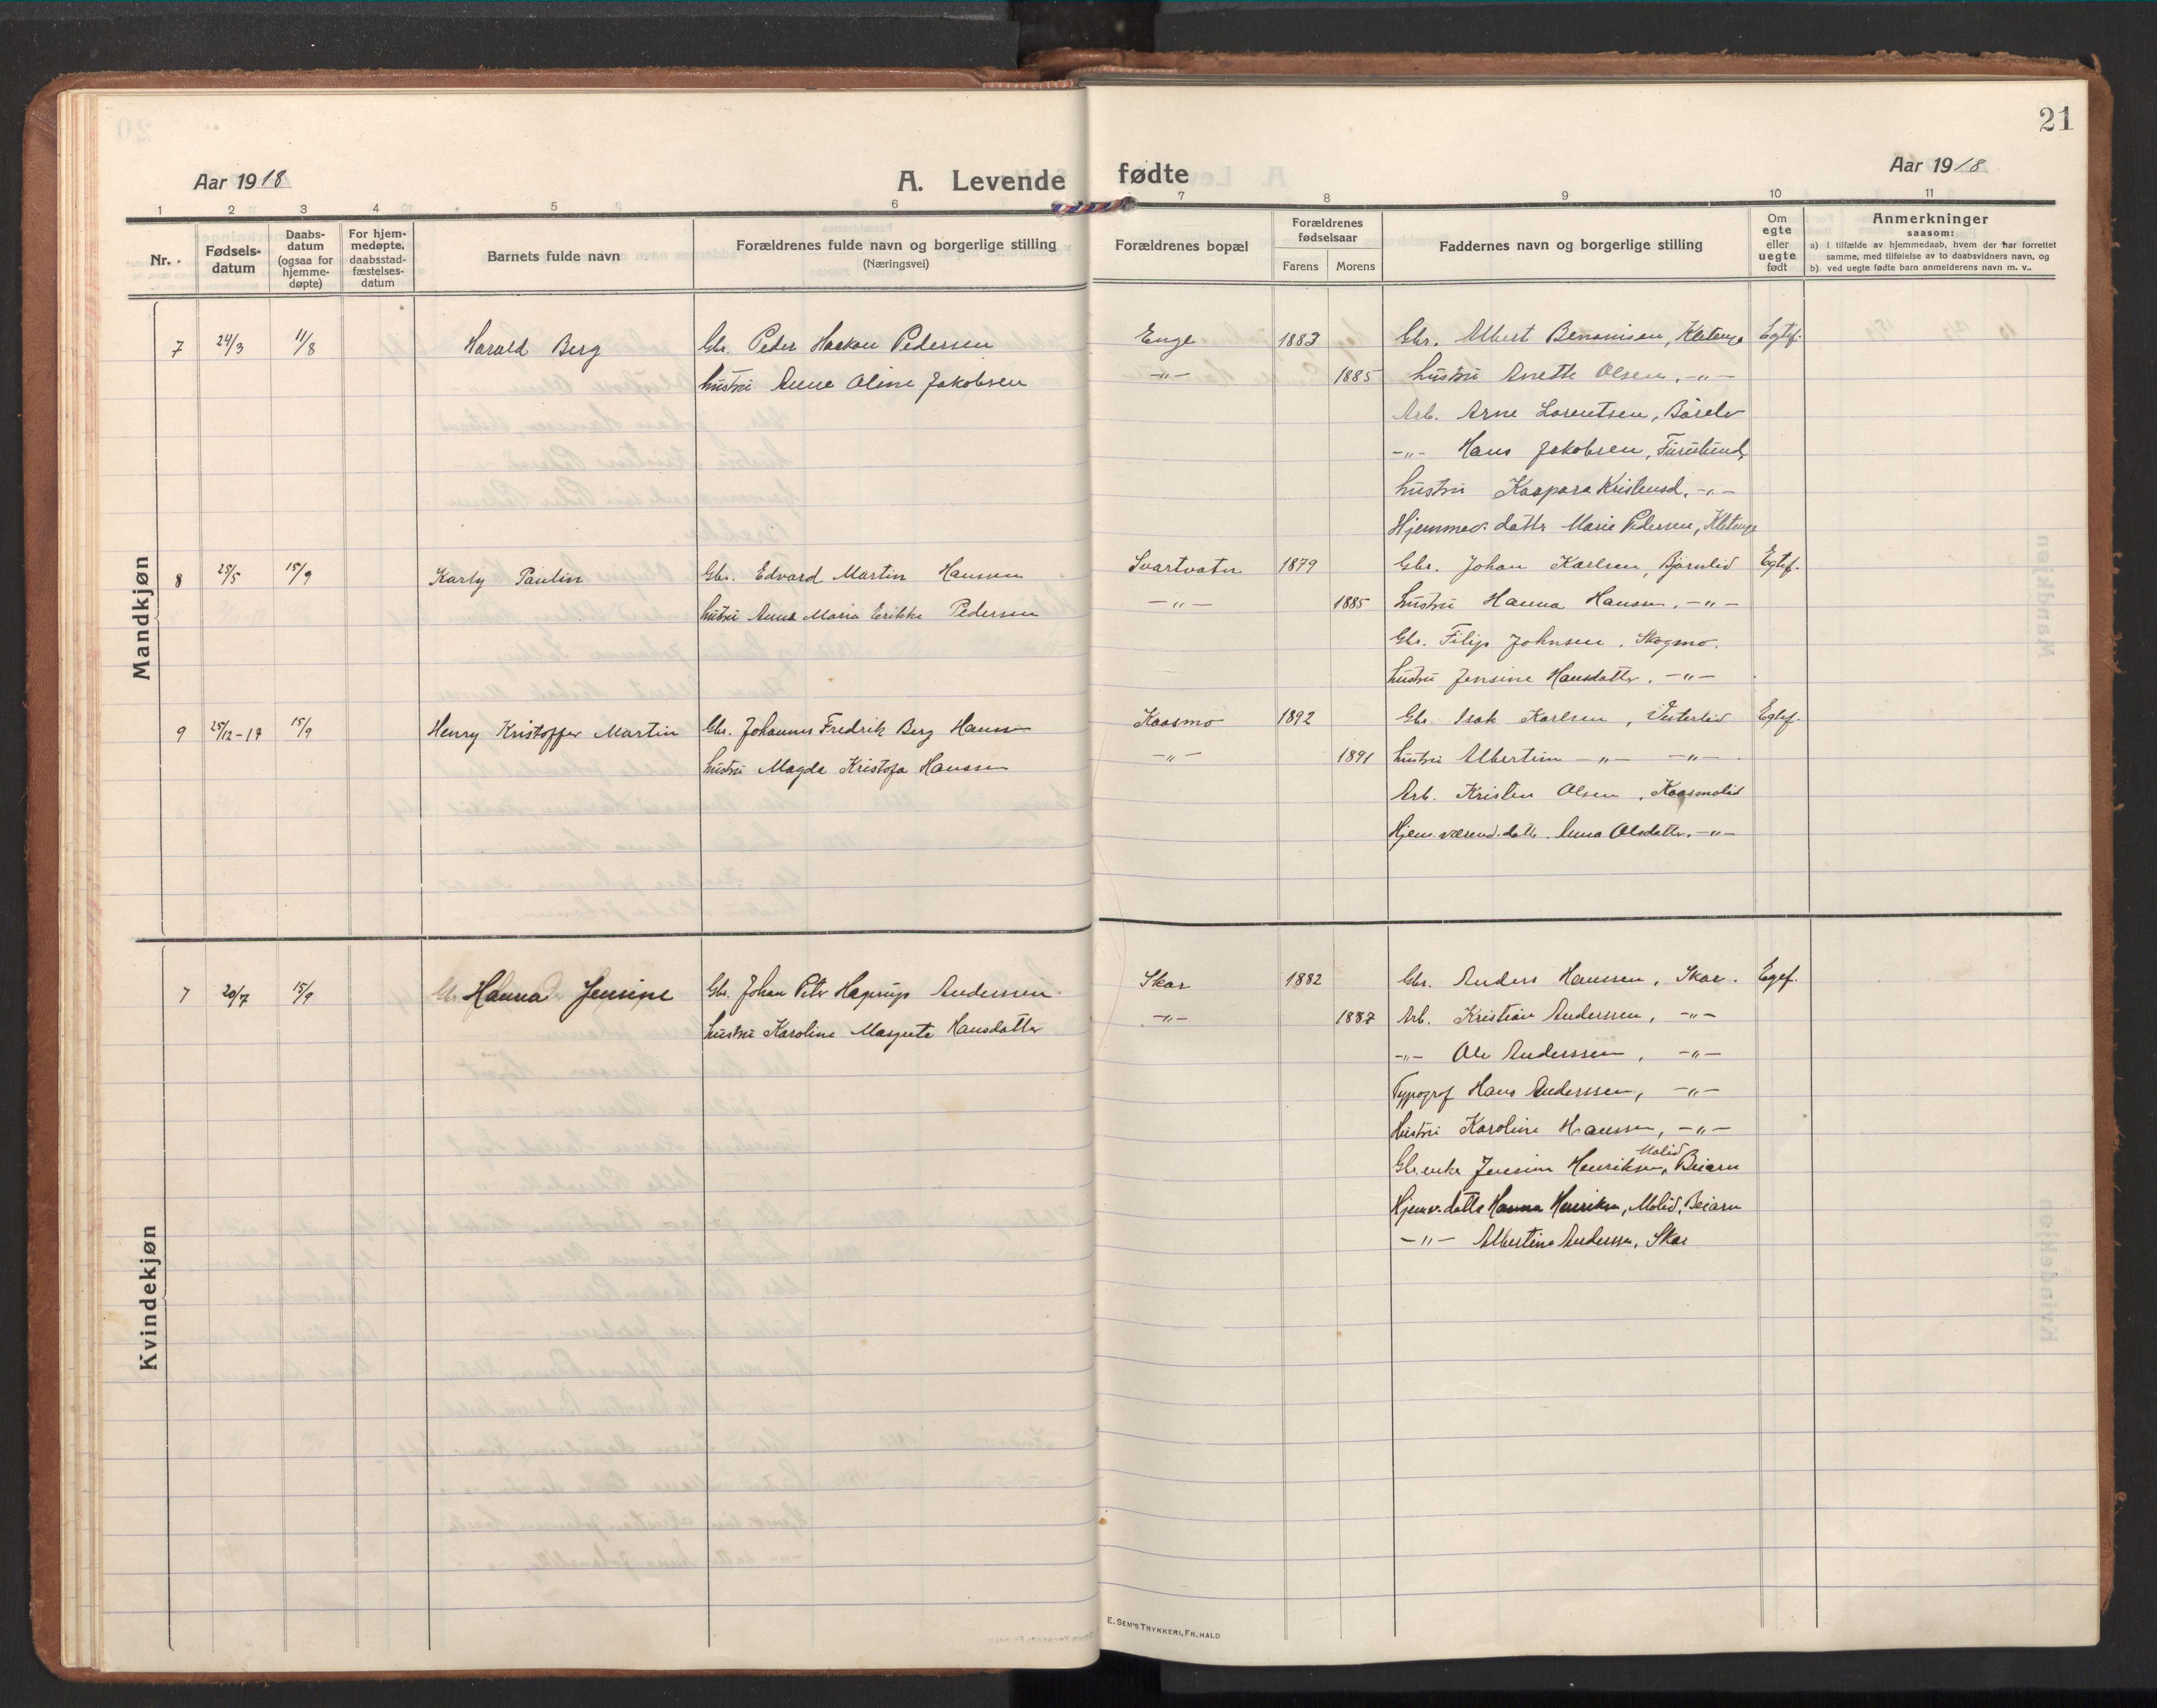 21
Aar 1918
A. Levende
fødte
Aar 1918
1 2 3 4 5 6 7 8 9 10 11
Nr.
Fødsels-
datum
Daabs-
datum
(ogsaa for
hjemme-
døpte)
For hjem-
medøpte,
daabsstad-
fæstelses-
datum
Barnets fulde navn
Forældrenes fulde navn og borgerlige stilling
(Næringsvei)
Forældrenes bopæl
Forældrenes
fødselsaar
Farens Morens
Faddernes navn og borgerlige stilling
Om
egte
eller
uegte
født
Anmerkninger
saasom:
a) i tilfælde av hjemmedaab, hvem der har forrettet
samme, med tilføielse av to daabsvidners navn, og
b) ved uegte fødte barn anmelderens navn m. v..
Mandkjøn
7 24/3 11/8 Harald Berg Gbr. Peder Haakon Pedersen Enge 1883 Gbr. Albert Benonisen, Kletenge Egtef.
hustru Anna Oline Jakobsen -"- 1885 hustru Anette Olsen, -"-
Arb. Arne Lorentsen, Børelv
-"- Hans Jakobsen, Furulund,
hustru Kaspara Kristensd. -"-
Hjemmev. datter Marie Pedersen, Kletenge
8 25/5 15/9 Karly Paulin Gbr. Edvard Martin Hansen Svartvatn 1879 Gbr. Johan Karlsen, Bjørnlid Egtef.
hustru Anna Maria Erikka Pedersen -"- 1885 hustru Hanna Hansen, -"-
Gbr. Filip Johnsen, Skogmo.
hustru Jensine Hansdatter, -"-
9 25/12-17 15/9 Henry Kristoffer Martin Gbr. Johannes Fredrik Berg Hanssen Kaasmo 1892 Gbr. Isak Karlsen, Vesterlid Egtef.
hustru Magda Kristofa Hanssen -"- 1891 hustru Albertine -"- -"-
Arb. Kristen Olsen, Kaasmolid
Hjem.værend. datter Anna Olsdatter, -"-
Kvindekjøn
7 20/7 15/9 Hanna Jensine Gbr. Johan Peter Haprup Anderssen Skar 1882 Gbr. Anders Hanssen, Skar. Egtef.
hustru Karoline Margrete Hansdatter -"- 1887 Arb. Kristian Anderssen, -"-
-"- Ole Anderssen, -"-
Typograf Hans Anderssen, -"-
Hustru Karoline Hanssen, -"-
Gbr.enke Jensine Henriksen, Molid, Beiarn
Hjemv. datter Hanna Henriksen, Molid, Beiarn
-"- Albertine Anderssen, Skar
E. SEM'S TRYKKERI, FR.HALD